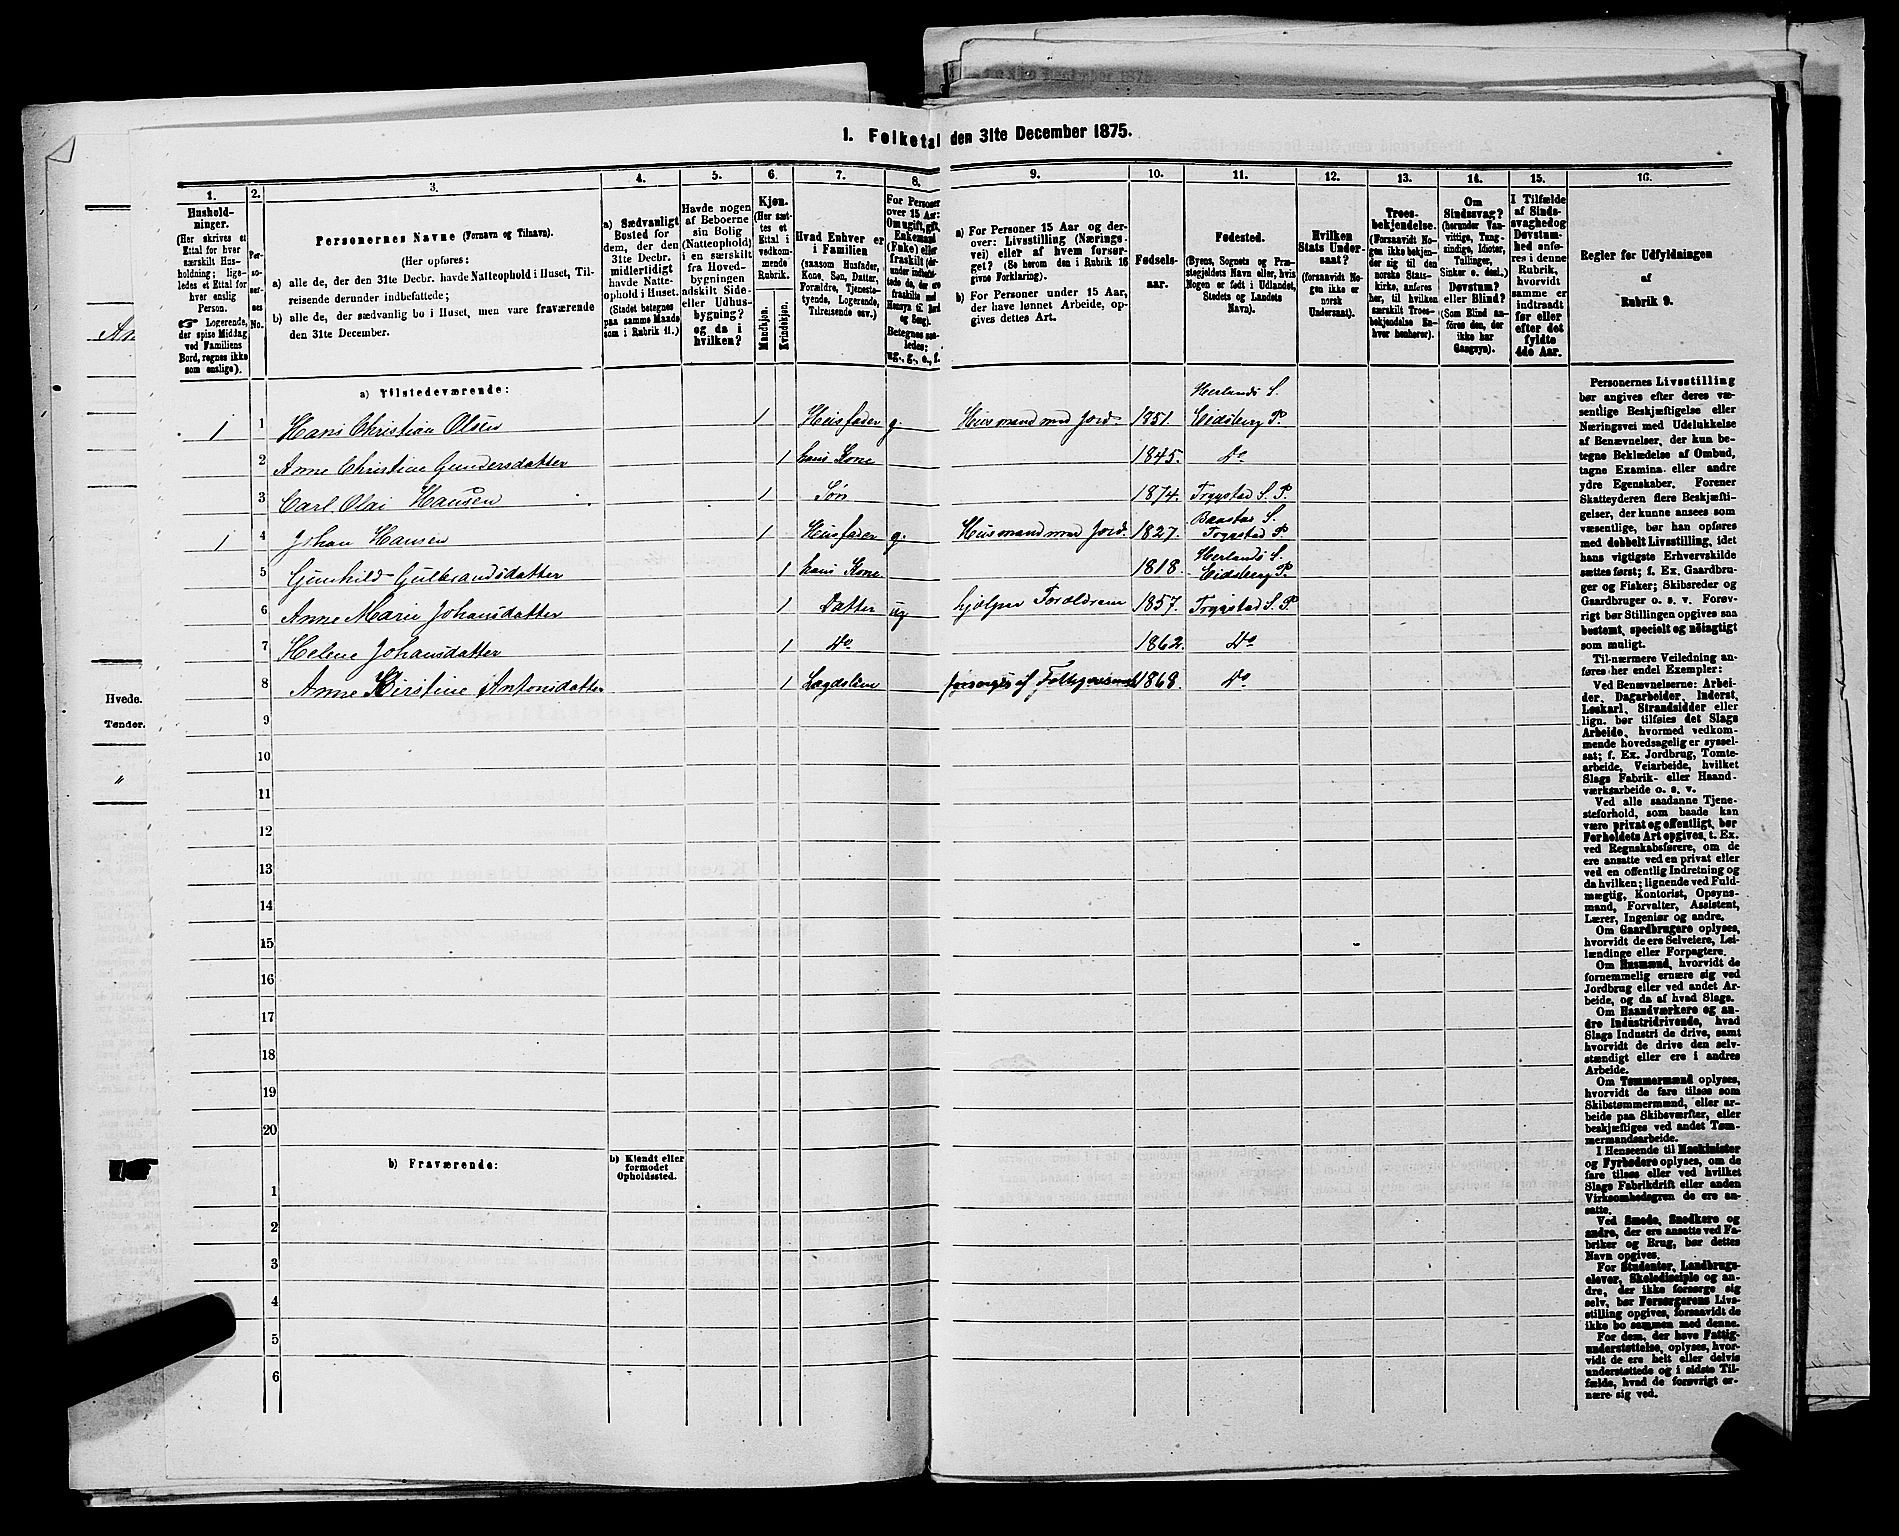 1. Folketal den 31te December 1875.
1. 2. 3. 4. 5. 6. 7. 8. 9. 10. 11. 12. 13. 14. 15. 16.
Hushold-
ninger.
(Her skrives et
Ettal for hver
særskilt Hus-
holdning; lige-
ledes et Ettal for
hver enslig
Person.
☞ Logerende,
der spise Middag
ved Familiens
Bord, regnes ikke
som enslige).
Per-
so-
ner-
nes
No.
Personernes Navne (Fornavn og Tilnavn).
(Her opføres:
a) alle de, der den 31te Decbr. havde Natteophold i Huset, Til-
reisende derunder indbefattede;
b) alle de, der sædvanlig bo i Huset, men vare fraværende
den 31te December.
a) Sædvanligt
Bosted for
dem, der den
31te Decbr.
midlertidigt
havde Natte-
ophold i Huset.
(Stedet betegnes
paa samme Maade
som i Rubrik 11.)
Havde nogen
af Beboerne
sin Bolig
(Natteophold)
i en særskilt
fra Hoved-
bygningen
adskilt Side-
eller Udhus-
bygning?
og da i
hvilken?
Kjøn.
(Her sæt-
tes et
Ettal i
vedkom-
mende
Rubrik.
Mandkjøn.
Kvindekjøn.
Hvad Enhver er
i Familien
(saasom Husfader,
Kone, Søn, Datter,
Forældre, Tjeneste-
tyende, Logerende,
Tilreisende osv.)
For Personer
over 15 Aar:
Om ugift, gift,
Enkemand
(Enke) eller
fraskilt
Betegnes saa-
ledes:
ug., g., e., f.
a) For Personer 15 Aar og der-
over: Livsstilling (Nærings-
vei) eller af hvem forsør-
get? (Se herom den i Rubrik 16
givne Forklaring).
b) For Personer under 15 Aar,
der have lønnet Arbeide, op-
gives dettes Art.
Fødsels-
aar.
Fødested.
(Byens, Sognets og Præ-
stegjeldets Navn eller, hvis
Nogen er født i Udlandet,
Stedets og Landets
Navn).
Hvilken
Stats Under-
saat?
(forsaavidt No-
gen ikke er
norsk
Undersaat).
Troes-
bekjendelse.
(Forsaavidt No-
gen ikke bekjen-
der sig til den
norske Stats-
kirke, anføres
her, til hvilken
særskilt Troes-
bekjendelse En-
hver henhører).
Om
Sindssvag?
(herunder Van-
vittige, Tung-
sindige, Idioter,
Tullinger,
Sinker o. desl.)
Døvstum?
eller Blind?
(Som Blind an-
føres den, der
ikke har
Gangsyn).
I Tilfælde
af Sinds-
svaghed og
Døvstum-
hed anfø-
res i denne
Rubrik,
hvorvidt
samme er
indtraadt
før eller
efter det
fyldte
4de Aar.
Regler for Udfyldningen
af
Rubrik 9.
a) Tilstedeværende:
1 1 Hans Christian Olsen 1 Husfader g. Husmand med Jord. 1851. Herlands S. Eidsberg P.
2 Anne Christine Gundersdatter 1 hans Kone 1845. Do
3 Carl Olai Hansen 1 Søn 1874. Trygstad S. P.
1 4 Johan Hansen 1 Husfader g. Husmand med Jord. 1827. Baastad S. Trygstad P.
5 Gunhild Gulbrandsdatter 1 hans Kone 1818. Herlands S. Eidsberg P.
6 Anne Marie Johansdatter 1 Datter ug hjælper Forældrene 1857. Trygstad S. P
7 Helene Johansdatter 1 Do 1862. Do
8 Anne Kirstine Antonsdatter 1 Lægdslem forsørges af 1868. Do
9
10
11
12
13
14
15
16
17
18
19
20
b) Fraværende:
b) Kjendt eller
formodet
Opholdssted.
1
2
3
4
5
6
Personernes Livsstilling
bør angives efter deres væ-
sentlige Beskjæftigelse eller
Næringsvei med Udelukkelse
af Benævnelser, der kun be-
tegne Beklædelse af Ombud,
tagne Examina eller andre
ydre Egenskaber. Forener
Skatteyderen flere Beskjæfti-
gelser, der kunne ansees som
væsentlige, bør han opføres
med dobbelt Livsstilling, idet
hans vigtigste Erhvervskilde
sættes først; f. Ex. Gaardbru-
ger og Fisker; Skibsreder og
Gaardbruger o. s. v. Forøv-
rigt bør Stillingen opgives saa
bestemt, specielt og nøiagtigt
som muligt.
Til nærmere Veiledning an-
føres her endel Exempler:
Ved Benævnelserne: Arbei-
der, Dagarbeider, Inderst,
Løskarl, Strandsidder eller
lign. bør tilføies det Slags
Arbeide, hvormed vedkom-
mende hovedsagelig er syssel-
sat; f. Ex. Jordbrug, Tomte-
arbeide, Veiarbeide, hvilket
Slags Fabrik- eller Haand-
værksarbeide o. s. v.
Ved alle saadanne Tjene-
steforhold, som baade kan
være privat og offentligt, bør
Forholdets Art opgives, t. Ex.
ved Regnskabsførere, om de
ere ansatte ved en privat eller
ved en offentlig Indretning og
da hvilken; lignende ved Fuld-
mægtig, Kontorist, Opsyns-
mand, Forvalter, Assistent,
Lærer, Ingeniør og andre.
Om Gaardbrugere oplyses,
hvorvidt de ere Selveiere, Lei-
lændinge eller Forpagtere.
Om Husmænd, hvorvidt de
fornemmelig ernære sig ved
Jordbrug eller ved andet Ar-
beide, og da af hvad Slags.
Om Haandværkere og an-
dre Industridrivende, hvad
Slags Industri de drive, samt
hvorvidt de drive den selv-
stændigt eller ere i andres
Arbeide.
Om Tømmermænd oplyses,
hvorvidt de fare tilsøs som
Skibstømmermænd, eller ar-
beide paa Skibsværfter, eller
beskjæftiges ved andet Tøm-
mermandsarbeide.
I Henseende til Maskinister
og Fyrbødere oplyses, om de
fare tilsøs eller ved hvilket
Slags Fabrikdrift eller anden
Virksomhedsgren de ere an-
satte.
Ved Smede, Snedkere og
andre, der ere ansatte ved Fa-
briker og Brug, bør dettes
Navn opgives.
For Studenter, Landbrugs-
elever, Skoledisciple og an-
dre, der ikke forsørge sig
selv, bør Forsørgerens Livs-
stilling opgives, forsaavidt de
ikke bo sammen med denne.
For dem, der have Fattig-
understøttelse, oplyses, hvor-
vidt de ere helt eller delvis
understøttede og i sidste Til-
fælde, hvad de forøvrigt er-
nære sig ved.
Hvede.
Tønder.
"